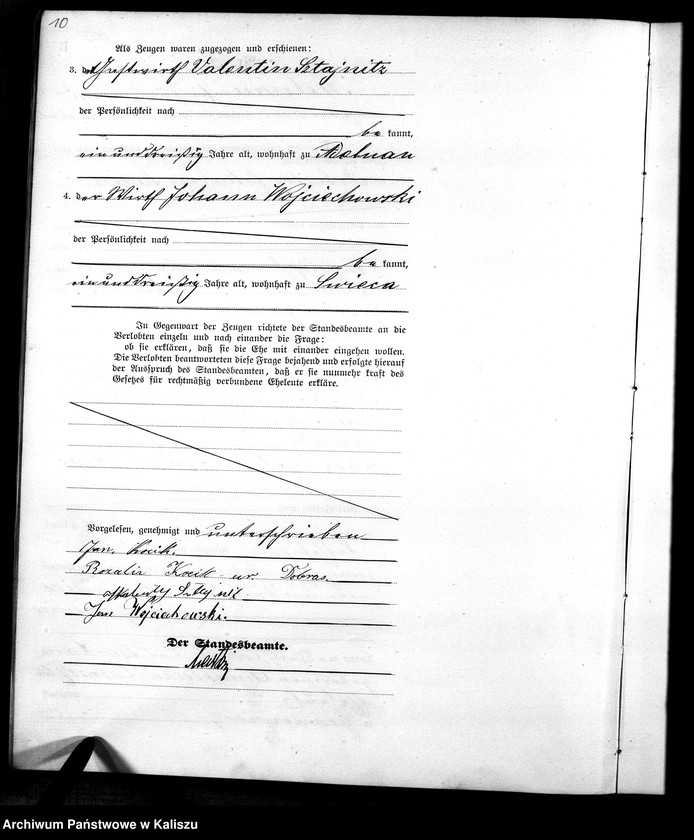 10
Als Zeugen waren zugezogen und erschienen:
3. der Gastwirth Valentin Sztajnitz
der Persönlichkeit nach
be kannt,
einunddreißig Jahre alt, wohnhaft zu
4. der Wirth Johann Wojciechowski
der Persönlichkeit nach
be kannt,
einunddreißig Jahre alt, wohnhaft zu Swieca
In Gegenwart der Zeugen richtete der Standesbeamte an die
Verlobten einzeln und nach einander die Frage:
ob sie erklären, daß sie die Ehe mit einander eingehen wollen.
Die Verlobten beantworteten diese Frage bejahend und erfolgte hierauf
der Ausspruch des Standesbeamten, daß er sie nunmehr kraft des
Gesetzes für rechtmäßig verbundene Eheleute erkläre.
Vorgelesen, genehmigt und unterschrieben
Jan Kocik.
Rozalia Kocik ur. Dobras.
Jan Wojciechowski.
Der Standesbeamte.
Archiwum Państwowe w Kaliszu